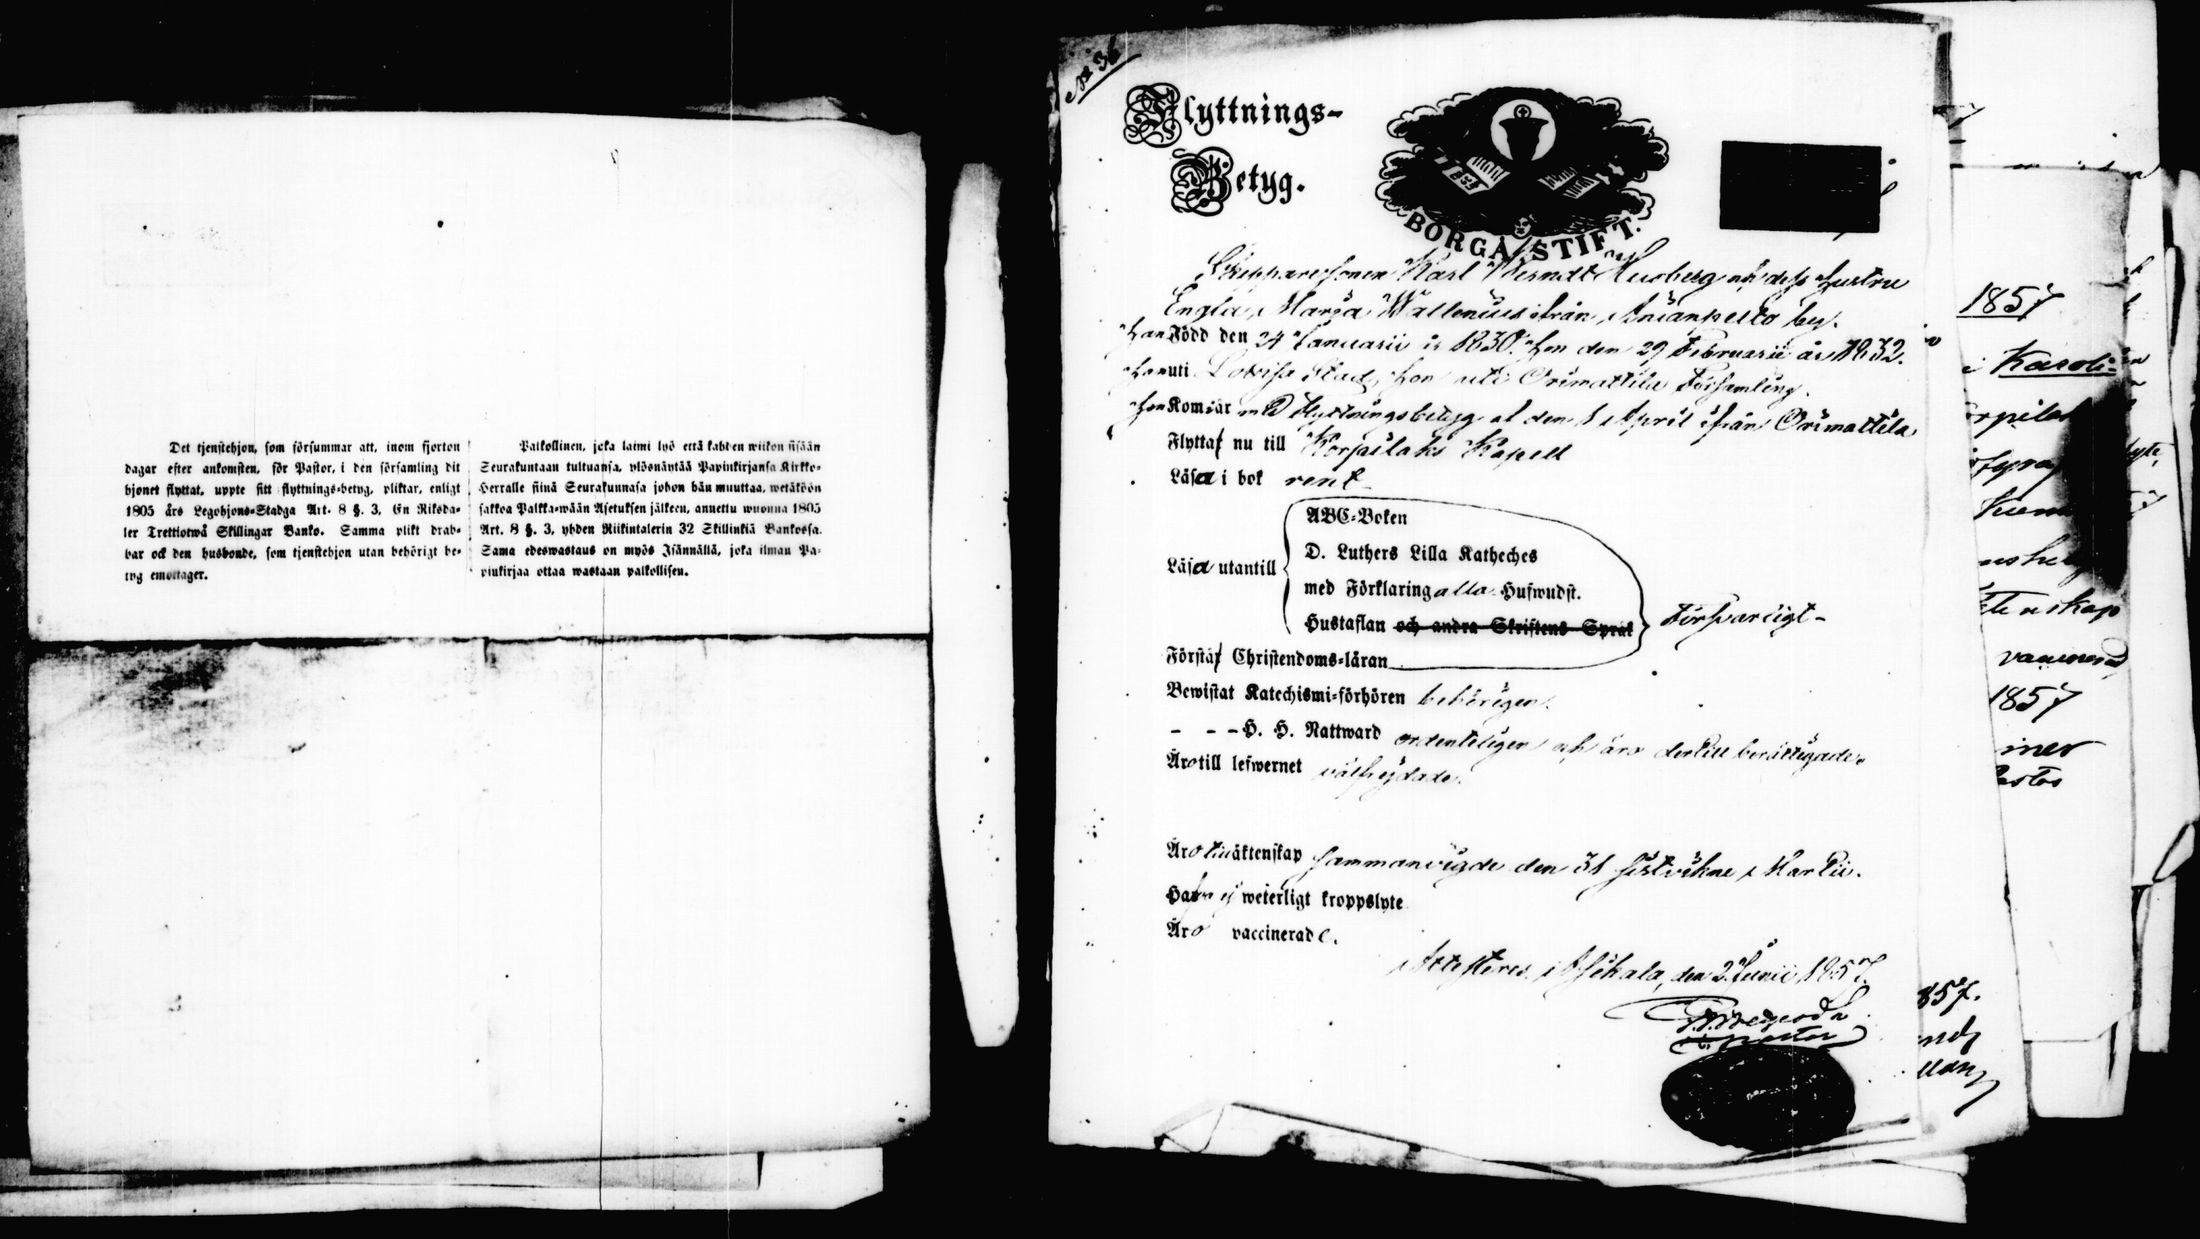 Det tjenstehjon, som försummar att, inom fjorton
dagar efter ankomsten, för Pastor, i den församling dit
hjonet flyttat, uppte sitt flyttnings-betyg, pliktar, enligt
1805 års Legohjons-Stadga Art. 8 §. 3, En Riksda-
ler Trettiotwå Skillingar Banko. Samma plikt drab-
bar ock den husbonde, som tjenstehjon utan behörigt be-
tyg emottager.
Palkollinen, joka laimi lyö että kahden wiikon sisään
Seurakuntaan tultuansa, ylösnäyttää Papinkirjansa Kirkko-
Herralle siinä Seurakunnasa johon hän muuttaa, wetäköön
sakkoa Palkka-wään Asetuksen jälkeen, annettu wuonna 1805
Art. 8 §. 3, yhden Riikintalerin 32 Skillinkiä Bankossa.
Sama edeswastaus on myös Isännällä, joka ilman Pa-
pinkirjaa ottaa wastaan palkollisen.
No 36
Flyttnings-
Betyg.
BORGÅ STIFT.
Skepparesonen Karl Berndt Husberg och dess hustru
Engla Maria Wallenius ifrån Anianpelto by.
Han Född den 24 Januarii år 1830. Hon den 29 Februarii år 1832.
Han uti Lovisa Stad, hon uti Orimattila Församling.
Hon Kom i år med Flyttningsbetyg af den 1 April ifrån Orimattila
Flytta nu till Korpilaks Kapell
Läsa i bok rent
ABC-Boken
D. Luthers Lilla Katheches
Läsa utantill
med Förklaring alla Hufwudst.
Hustaflan och andra Skriftens Språk
Försvarligt-
Förstå Christendoms-läran
Bewistat Katechismi-förhören behörigen.
- - - H. H. Nattward ordenteligen och äro dertill berättigade.
Äro till lefwernet välfrejdade.
Äro till äktenskap sammanvigde den 31 sistvikne Martii.
Hafva ej weterligt kroppslyte
Äro vaccinerade.
Attesteras, i Asikala, den 2 Junii 1857.
Pastor
1857
Karoli-
vaccinerad
1857
857.